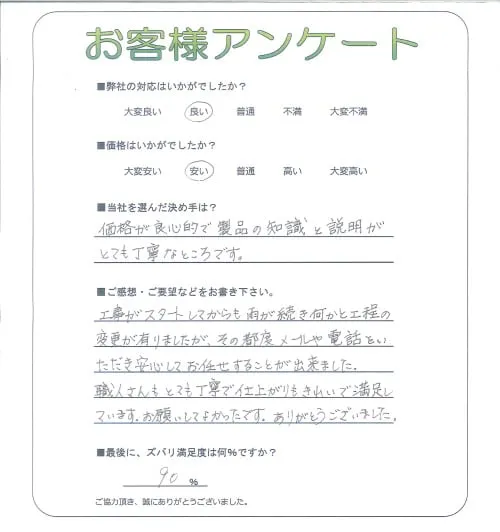 お客様アンケート
■弊社の対応はいかがでしたか？
大変良い 良い 普通 不満 大変不満
■価格はいかがでしたか？
大変安い 安い 普通 高い 大変高い
■当社を選んだ決め手は？
価格が良心的で製品の知識と説明が
とても丁寧なところです。
■ご感想・ご要望などをお書き下さい。
工事がスタートしてからも雨が続き何かと工程の
変更が有りましたが、その都度メールや電話をい
ただき安心してお任せすることが出来ました。
職人さんもとても丁寧で仕上がりもきれいで満足し
ています。お願いしてよかったです。ありがとうございました。
■最後に、ズバリ満足度は何%ですか？
90 %
ご協力頂き、誠にありがとうございました。